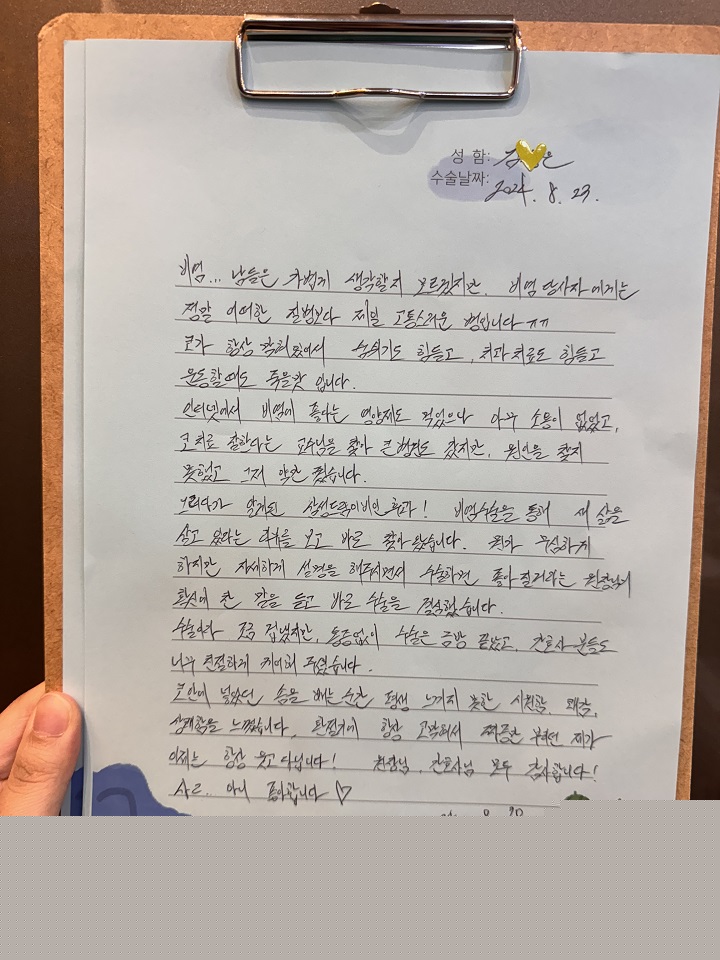 성 함: 김
수술날짜: 2024. 8. 23.
비염... 남들은 가볍게 생각할지 모르겠지만, 비염 당사자에게는
정말 어떠한 질병보다 제일 고통스러운 병입니다 ㅠㅠ
코가 항상 막혀있어서 숨쉬기도 힘들고, 치과치료도 힘들고
운동할때도 죽을맛 입니다.
인터넷에서 비염에 좋다는 영양제도 먹었으나 아무 소용이 없었고,
코치료 잘한다는 교수님을 찾아 큰병원도 갔지만, 원인을 찾지
못했고 그저 약만 줬습니다.
그러다가 알게된 삼성드림이비인후과! 비염수술을 통해 새 삶을
살고 있다는 리뷰를 보고 바로 찾아왔습니다. 뭔가 무심하게
하지만 자세하게 설명을 해주시면서 수술하면 좋아질거라는 원장님의
확신에 찬 말을 듣고 바로 수술을 결심했습니다.
수술이라 조금 겁났지만, 통증없이 수술은 금방 끝났고, 간호사 분들도
너무 친절하게 케어해 주셨습니다.
콧안에 넣었던 솜을 빼는 순간 평생 느끼지 못한 시원함, 쾌감,
상쾌함을 느꼈습니다. 환절기에 항상 코막혀서 짜증만 부렸던 제가
이제는 항상 웃고 다닙니다! 원장님, 간호사님 모두 감사합니다!
사.. 아니 좋아합니다 ♡